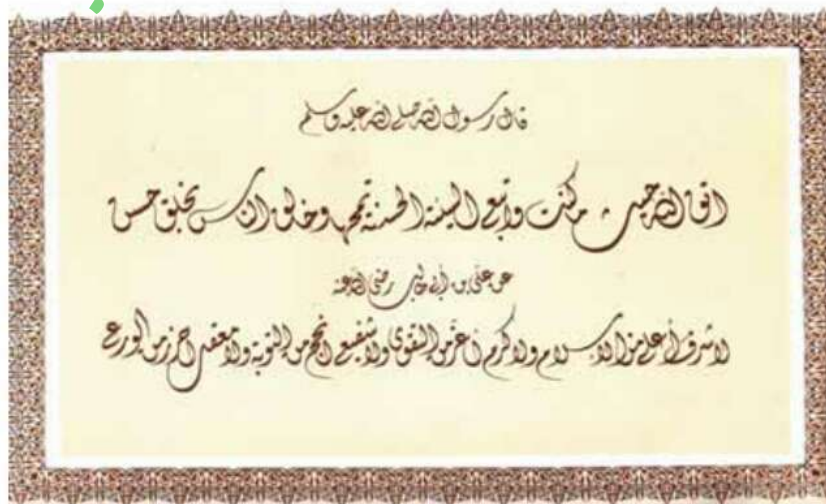 قال رسول الله صلى الله عليه وسلم
اتق الله حيث ما كنت وأتبع السيئة الحسنة تمحها وخالق الناس بخلق حسن
عن علي بن أبي طالب رضي الله عنه
لا شرف أعلى من الإسلام ولا كرم أعز من التقوى ولا شفيع أنجح من التوبة ولا معقل أحرز من الورع